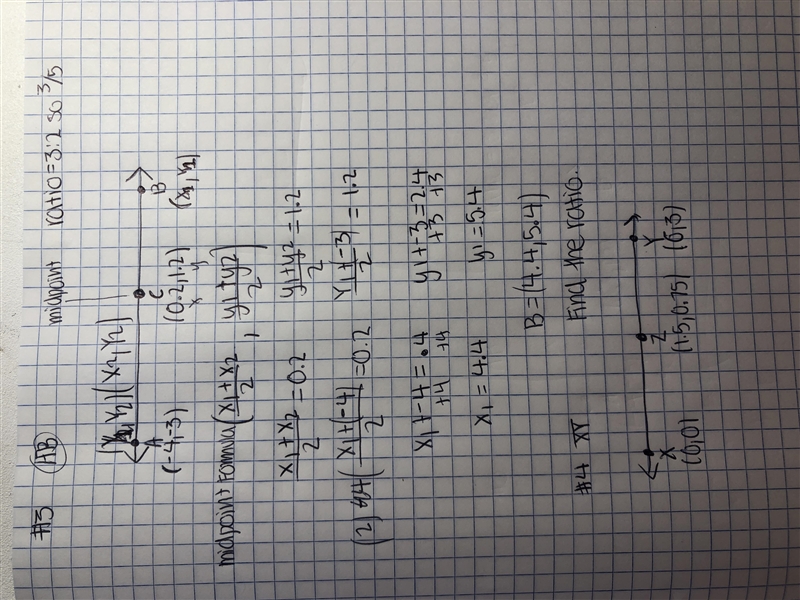 #3 (AB) midpoint ratio=3:2 so 3/5
(x2, y2) (x2, y2)
A C B
(-4,-3) (0.2,1.2) (x1, y1)
x y
midpoint formula (x1+x2/2 , y1+y2/2)
x1+x2/2 = 0.2 y1+y2/2 = 1.2
(2) (x1+(-4)/2) = 0.2 y1+(-3)/2 = 1.2
x1+-4 = .4 y1+-3 = 2.4
+4 +4 +3 +3
x1 = 4.4 y1 = 5.4
B = (4.4, 5.4)
#4 XY Find the ratio.
X Z Y
(0,0) (1.5,0.75) (6,3)